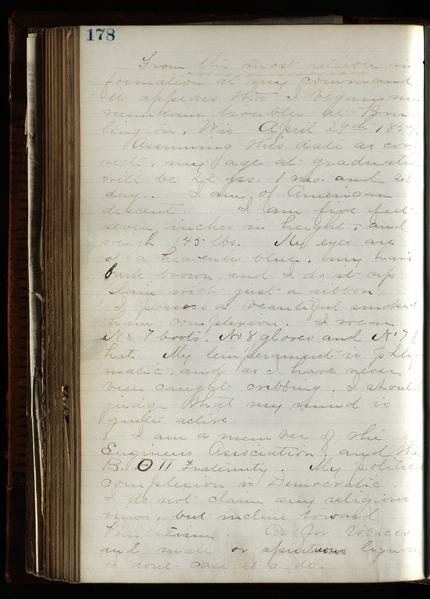 178
From the most reliable in
formation at my command
it appears that I began my
mundane troubles at
Wis. April 29th
Assuming this date as cor
rect, my age at graduation
will be 22 yrs. 1 mo. and 22
days. I am of American
descent. I am five feet
seven inches in height, and
weigh 145 lbs. My eyes are
of a heavenly blue, my hair
dark brown and I do it up
plain with just a ribbon.
I possess a beautiful smoked
ham complexion. I wear
No 7 boots, No 8 gloves and No 7
hat. My temperament is phleg
matic, and as I have never
been caught cribbing, I should
judge that my mind is
quite active.
I am a member of the
Engineers Association, and the
B. Θ Π Fraternity. My political
complexion is Democratic.
I do not claim any religious
views, but incline toward
As for tobacco
and malt or spirituous liquors
I dont care if I do.